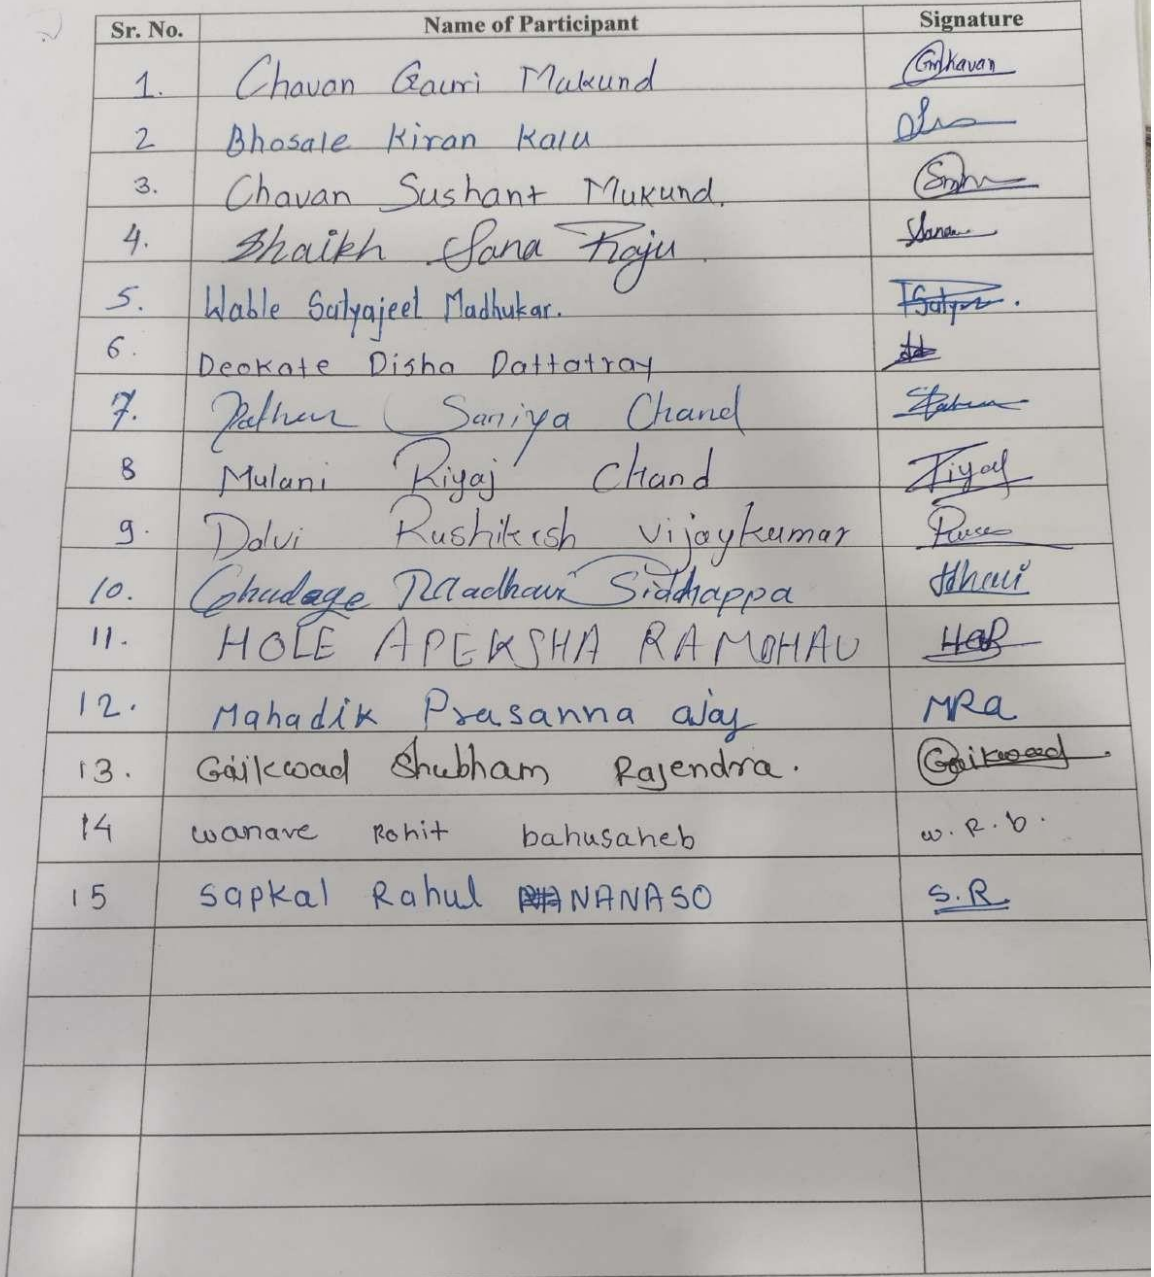 Sr. No. Name of Participant Signature
1. Chavan Gauri Mukund GMkavan
2 Bhosale Kiran Kalu
3. Chavan Sushant Mukund.
4. Shaikh Sana Raju. Sana
5. Wable Satyajeet Madhukar.
6. Deokate Disha Dattatray
7. Pathan Saniya Chand
8 Mulani Riyaj Chand Riyaj
9. Dalvi Rushikesh vijaykumar
10. Ghadage Maadhavi Siddhappa
11. HOLE APEKSHA RAMBHAU HAR
12. Mahadik Prasanna ajay MRa
13. Gaikwad Shubham Rajendra. Gaikwad.
14 wanave Rohit bahusaheb w. R. b.
15 Sapkal Rahul NANASO S.R